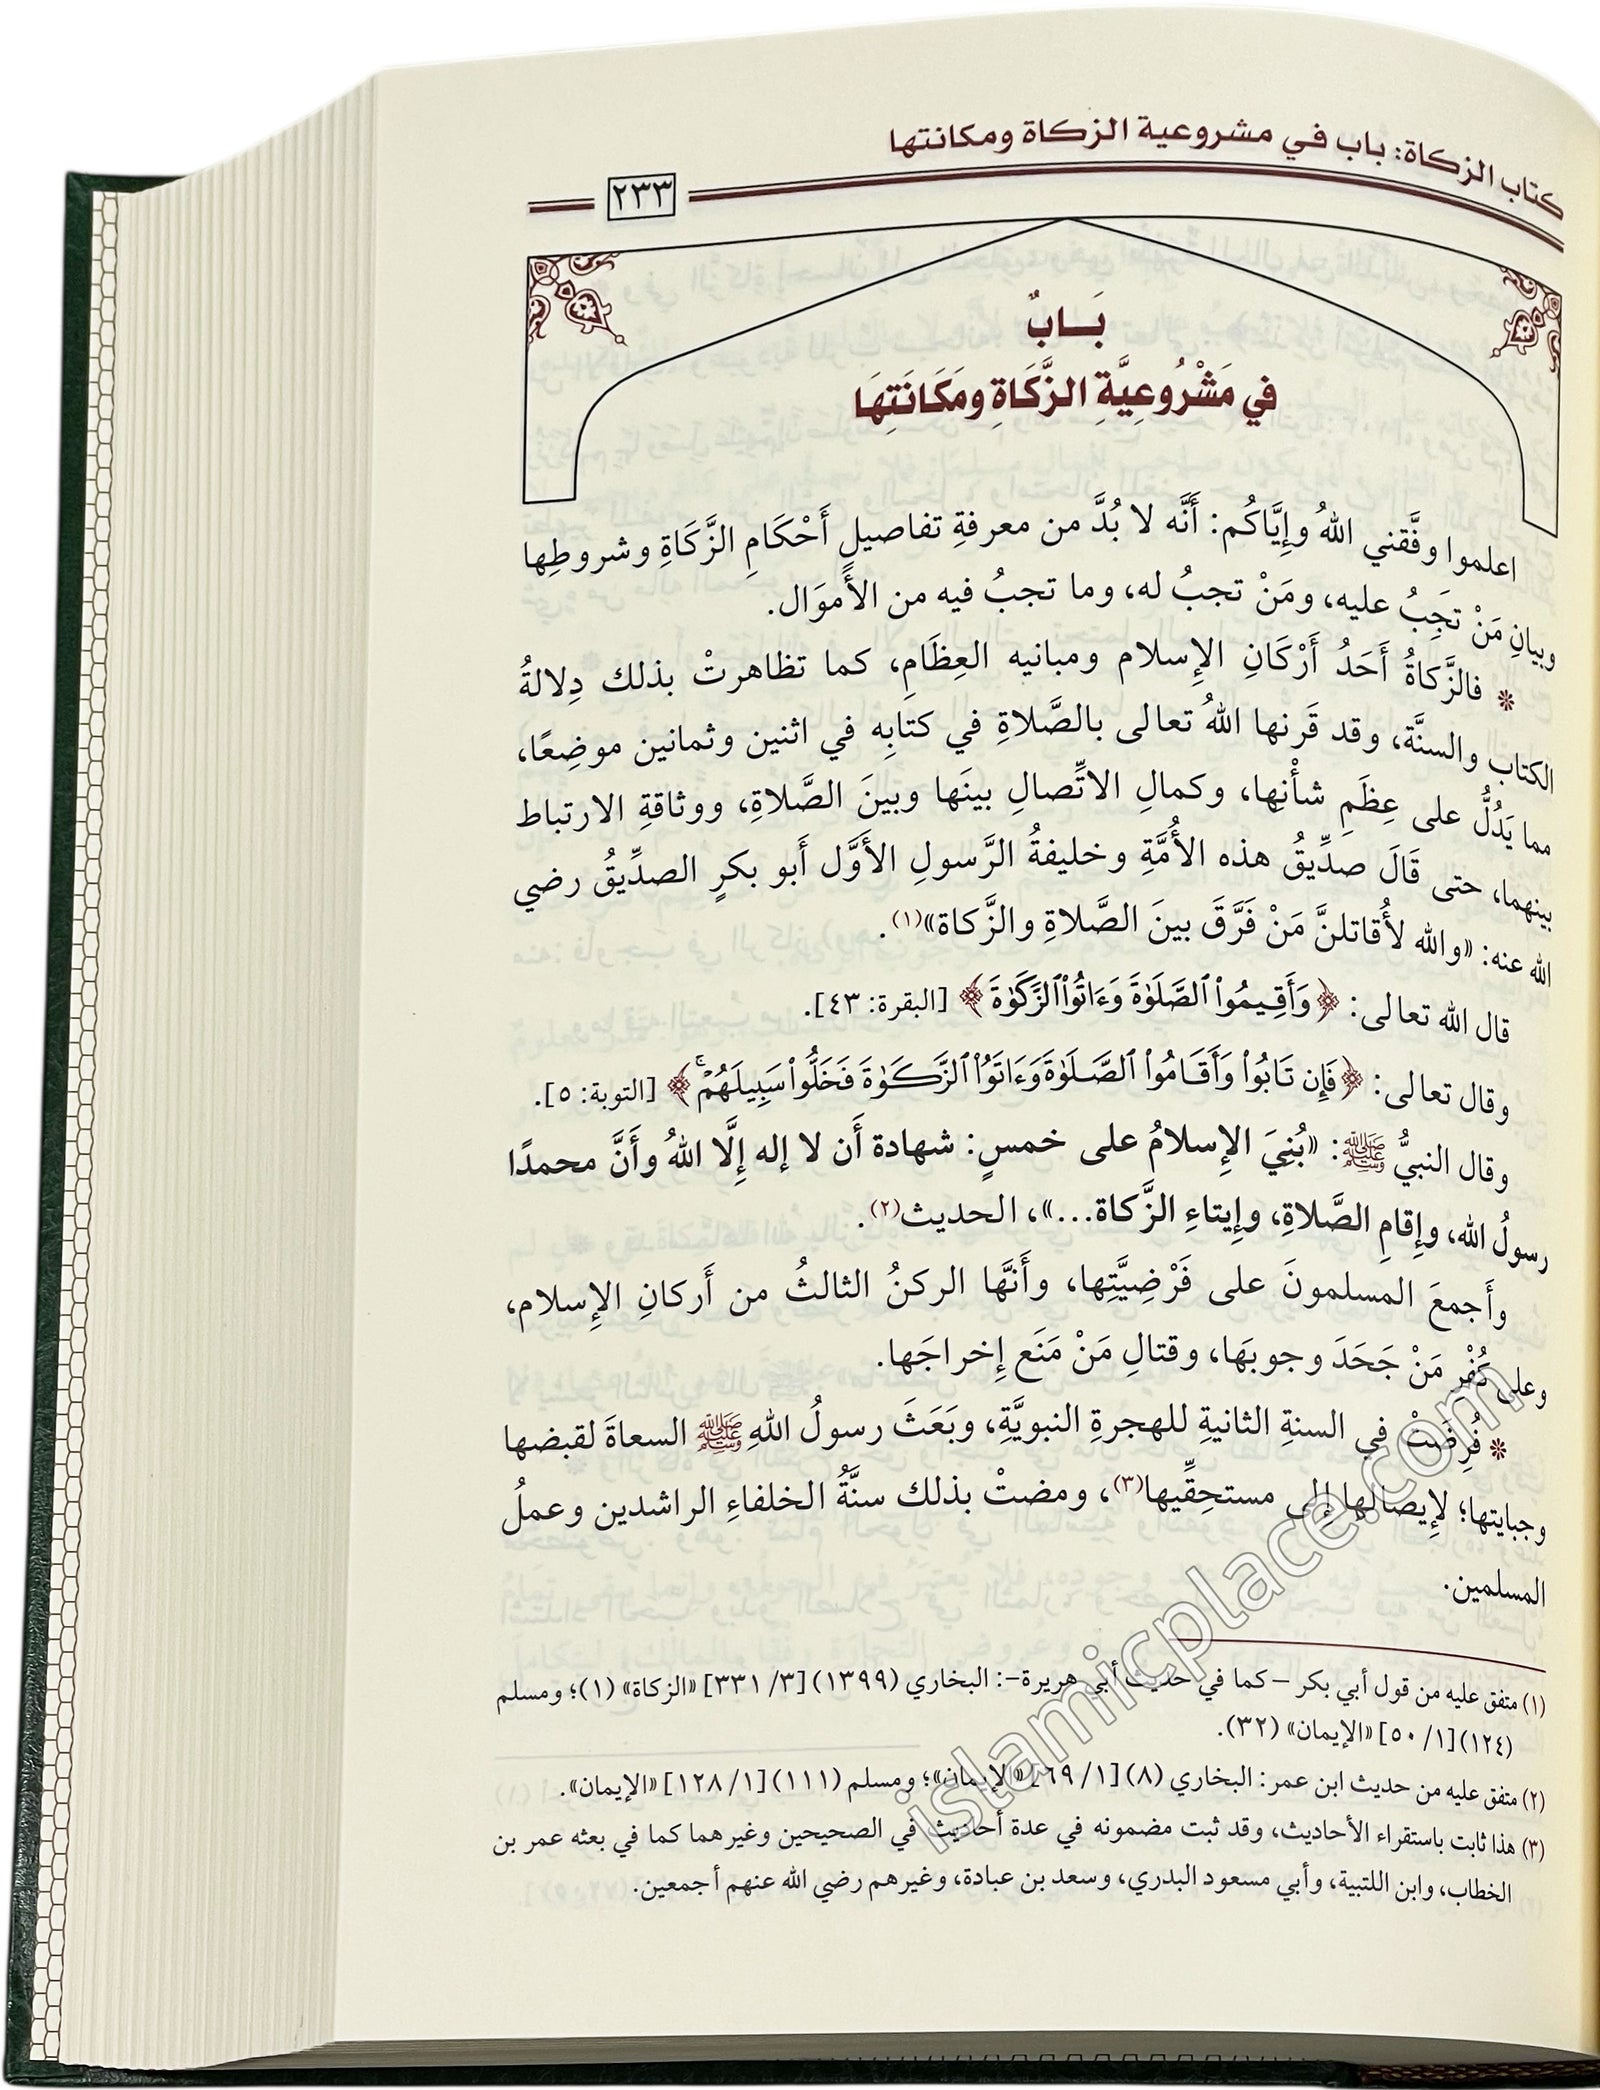 كتاب الزكاة: باب في مشروعية الزكاة ومكانتها
٢٣٣
بَـابٌ
في مَشْرُوعِيَّةِ الزَّكَاةِ ومَكَانَتِهَا
اعلموا وفَّقني اللهُ وإِيَّاكُم: أَنَّه لا بُدَّ من معرفةِ تفاصيلِ أَحْكَامِ الزَّكَاةِ وشروطِها
وبيانِ مَنْ تجَِبُ عليه، ومَنْ تجبُ له، وما تجبُ فيه من الأَموَال.
* فالزَّكَاةُ أَحَدُ أَرْكَانِ الإِسلام ومبانيه العِظَامِ، كما تظاهرتْ بذلك دِلالةُ
الكتاب والسنَّة، وقد قَرنها اللهُ تعالى بالصَّلاةِ في كتابِه في اثنين وثمانين موضِعًا،
مما يَدُلُّ على عِظَمِ شأْنِها، وكمالِ الاتِّصالِ بينَها وبينَ الصَّلاةِ، ووثاقةِ الارتباط
بينهما، حتى قَالَ صدِّيقُ هذه الأُمَّةِ وخليفةُ الرَّسولِ الأَوَّل أَبو بكرٍ الصدِّيقُ رضي
الله عنه: «والله لأُقاتلنَّ مَنْ فَرَّقَ بينَ الصَّلاةِ والزَّكاة»(١).
قال الله تعالى: ﴿وَأَقِيمُوا۟ ٱلصَّلَوٰةَ وَءَاتُوا۟ ٱلزَّكَوٰةَ﴾ [البقرة: ٤٣].
وقال تعالى: ﴿فَإِن تَابُوا۟ وَأَقَامُوا۟ ٱلصَّلَوٰةَ وَءَاتَوُا۟ ٱلزَّكَوٰةَ فَخَلُّوا۟ سَبِيلَهُمْ ۚ﴾ [التوبة: ٥].
وقال النبيُّ ﷺ: «بُنِيَ الإِسلامُ على خمسٍ: شهادة أَن لا إله إِلَّا اللهُ وأَنَّ محمدًا
رسولُ الله، وإِقامِ الصَّلاةِ، وإِيتاءِ الزَّكاة...»، الحديث(٢).
وأَجمعَ المسلمونَ على فَرْضِيَّتِها، وأَنهَّا الركنُ الثالثُ من أَركانِ الإِسلام،
وعلى كُفْرِ مَنْ جَحَدَ وجوبهَا، وقتالِ مَنْ مَنَع إِخراجَها.
* فُرِضَتْ في السنةِ الثانيةِ للهجرةِ النبويَّةِ، وبَعَثَ رسولُ اللهِ ﷺ السعاةَ لقبضها
وجبايتها؛ لإِيصالها إِلى مستحِقِّيها(٣)، ومضتْ بذلك سنَّةُ الخلفاءِ الراشدين وعملُ
المسلمين.
(١) متفق عليه من قول أبي بكر – كما في حديث أبي هريرة–: البخاري (١٣٩٩) [٣/ ٣٣١] «الزكاة» (١)؛ ومسلم
(١٢٤) [١/ ٥٠] «الإيمان» (٣٢).
(٢) متفق عليه من حديث ابن عمر: البخاري (٨) [١/ ٦٩] «الإيمان»؛ ومسلم (١١١) [١/ ١٢٨] «الإيمان».
(٣) هذا ثابت باستقراء الأحاديث، وقد ثبت مضمونه في عدة أحاديث في الصحيحين وغيرهما كما في بعثه عمر بن
الخطاب، وابن اللتبية، وأبي مسعود البدري، وسعد بن عبادة، وغيرهم رضي الله عنهم أجمعين.
islamicplace.com